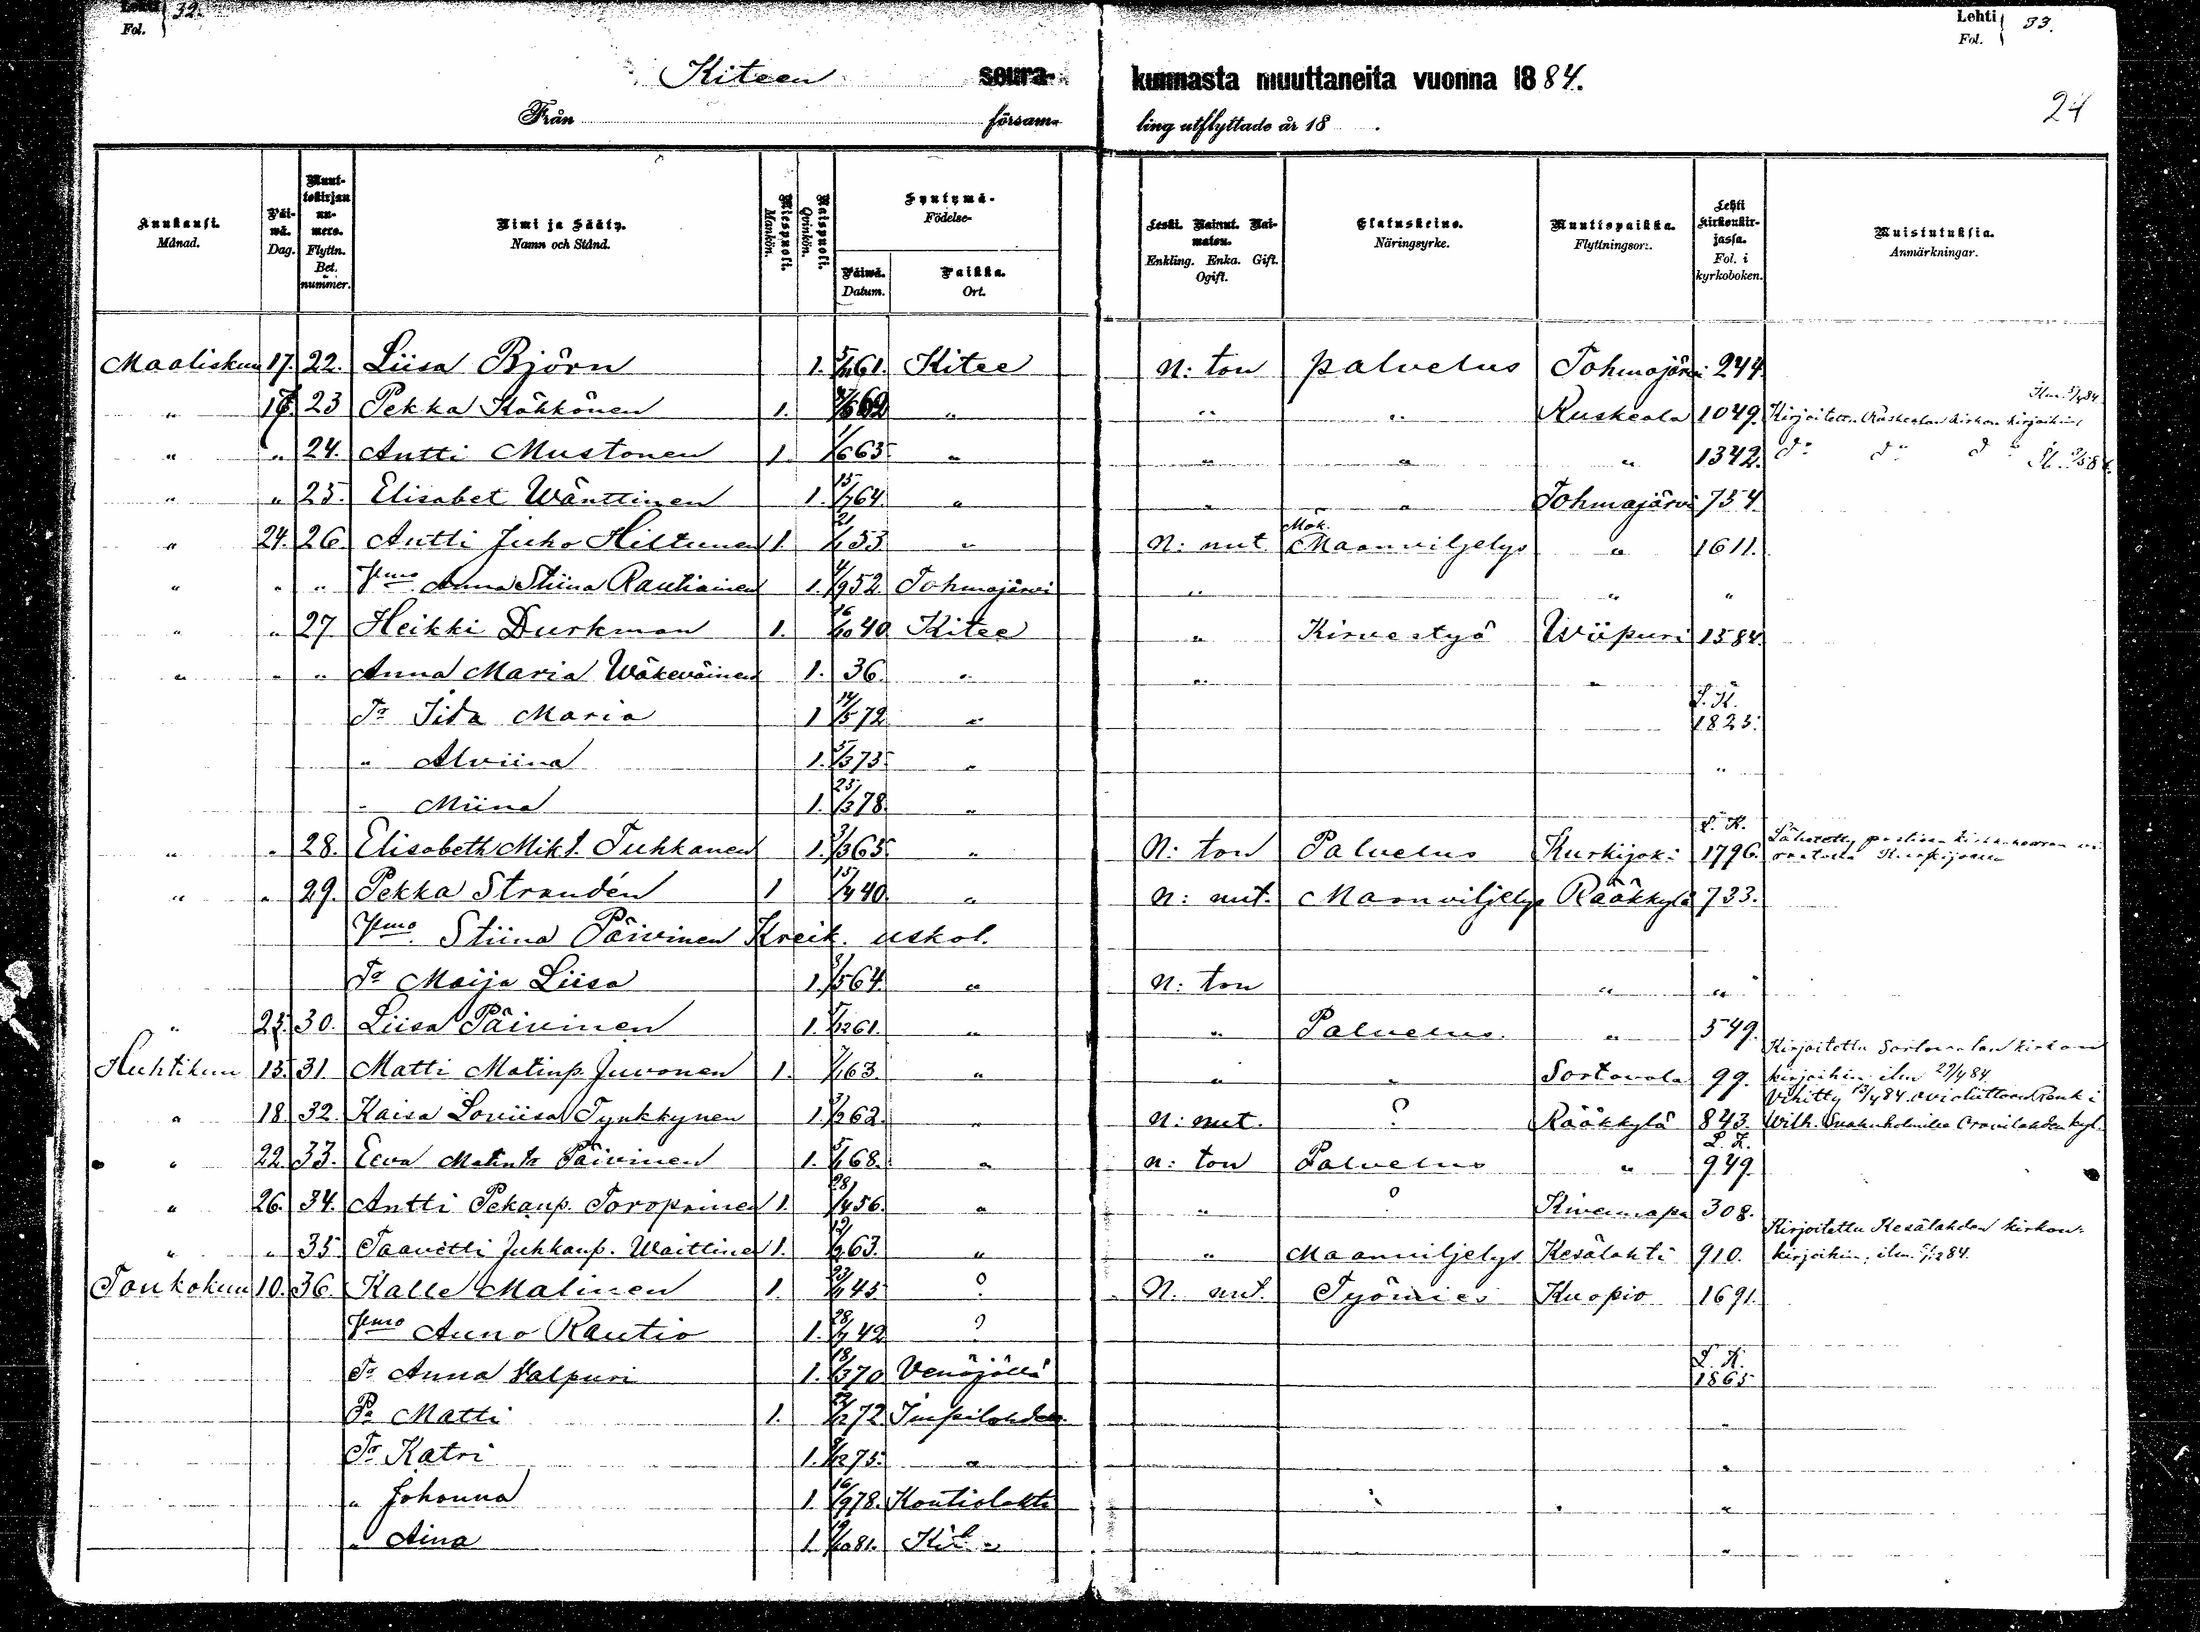 Lehti Fol. 32.
Lehti Fol. 33.
Kiteen seurakunnasta muuttaneita vuonna 1884.
24
Från församling utflyttade år 18 .
Kuukausi. Månad. Päiwä. Dag. Muuttokirjan numero. Flyttn. Bet. nummer. Nimi ja Sääty. Namn och Stånd. Miespuoli. Mankön. Waispuoli. Qvinkön. Syntymä- Födelse- Päiwä. Datum. Paikka. Ort. Leski. Nainut. Naimaton. Enkling. Enka. Gift. Ogift. Elatuskeino. Näringsyrke. Muuttopaikka. Flyttningsort. Lehti kirkonkirjassa. Fol. i kyrkoboken. Muistutuksia. Anmärkningar.
Maaliskuu 17. 22. Liisa Björn 1. 61. Kitee n: ton palvelus Tohmajärvi 244
" 17 23 Pekka Kökkönen 1. 62 " " " Ruskeala 1049. Kirjoitettu Ruskealan kirkon kirjoihin,
" " 24. Antti Mustonen 1. 1/6 63 " " " " 1342. do do do
" " 25. Elisabet Wänttinen 1. 15/7 64. " " " Tohmajärvi 754.
" 24. 26. Antti Juho Hiltunen 1. 21/1 53 " N: nut Mäk. Maanviljelys " 1611.
" " " Vmo Anna Stiina Rautiainen 1. 4/9 52. Tohmajärvi " " "
" " 27 Heikki Durkman 1. 16/10 40 Kitee " Kirvestyö Wiipuri 1584.
" " " Anna Maria Wäkeväinen 1. 36. " " " "
Tr Iida Maria 1 14/5 72 " L. K. 1823.
" Alviina 1. 5/3 75. " "
" Miina 1. 23/3 78. "
" " 28. Elisabeth Mikt. Tuhkanen 1. 3/3 65 " N: ton Palvelus Kurkijoki L. K. 1796.
" " 29. Pekka Strandén 1 15/4 40. " n: nut. Maanviljelys Rääkkylä 733.
Vmo Stiina Päivinen Kreik. uskol.
Tr Maija Liisa 1. 8/5 64. " n: ton " "
" 25. 30. Liisa Päivinen 1. 5/12 61. " " Palvelus. " 549.
Huhtikuu 15. 31 Matti Matinp. Juvonen 1. 7/1 63. " " " Sortavala 99. Kirjoitettu Sortavalan kirkon kirjoihin ilm 29/4 84.
" 18 32. Kaisa Loviisa Tynkkynen 1. 3/2 62. " n: nut. ? Rääkkylä 843. Vihitty 13/4 84. avioliittoon Renki Wilh.
" 22. 33. Eeva Matint. Päivinen 1. 5/1 68. " n: ton Palvelus " L. K. 949.
" 26. 34. Antti Pekanp. Toropainen 1. 28/4 56. " " ? Kivennapa 308.
" " 35. Taavetti Juhkanp. Waittinen 1. 12/2 63. " " Maanviljelys Kesälahti 910. Kirjoitettu Kesälahden kirkonkirjoihin, ilm.
Toukokuu 10. 36. Kalle Malinen 1. 23/1 45 ? N. nut. Työmies Kuopio 1691.
Vmo Anna Rautio 1. 28/4 42 ?
Tr Anna Valpuri 1. 18/3 70 Venäjällä L. K. 1865
Pa Matti 1. 72 Impilahden "
Tr Katri 1. 75. " "
" Johanna 1 16/9 78. Kontiolahti "
" Aina 1. 19/10 81. Kitee "